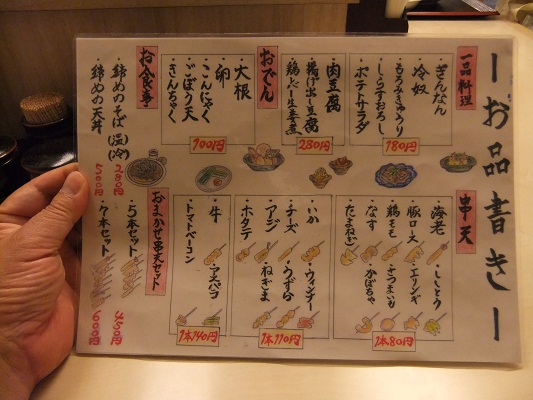 ーお品書きー
一品料理
・ぎんなん
・冷奴
・もろみきゅうり
・しらすおろし
・ポテトサラダ
180円
・肉豆腐
・揚げ出し豆腐
・鶏レバー生姜煮
280円
おでん
・大根
・卵
・こんにゃく
・ごぼう天
・きんちゃく
100円
お食事
・締めのそば(温)(冷)
280円
・締めの天丼
500円
串天
・海老
・豚ロース
・鶏もも
・なす
・たまねぎ
・ししとう
・エリンギ
・さつまいも
・かぼちゃ
1本80円
・いか
・チーズ
・アジ
・ホタテ
・ウィンナー
・うずら
・ねぎま
1本110円
・牛
・トマトベーコン
・アスパラ
1本140円
おまかせ串天セット
・5本セット
450円
・7本セット
600円